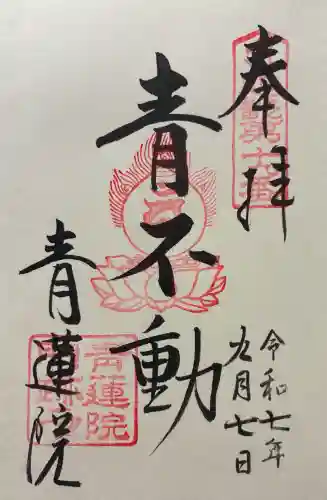 奉拝
青不動
青蓮院
令和七年
九月七日
青蓮院